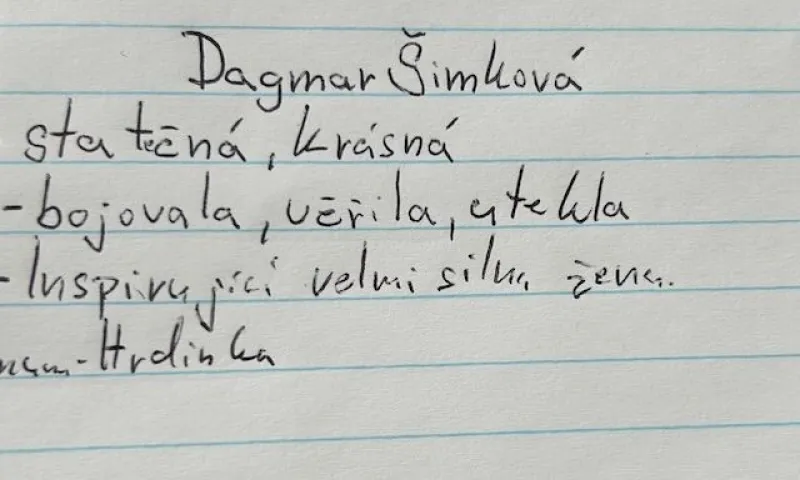 Dagmar Šimková
statečná, krásná
- bojovala, věřila, utekla
- Inspirující velmi silná žena.
- Hrdinka